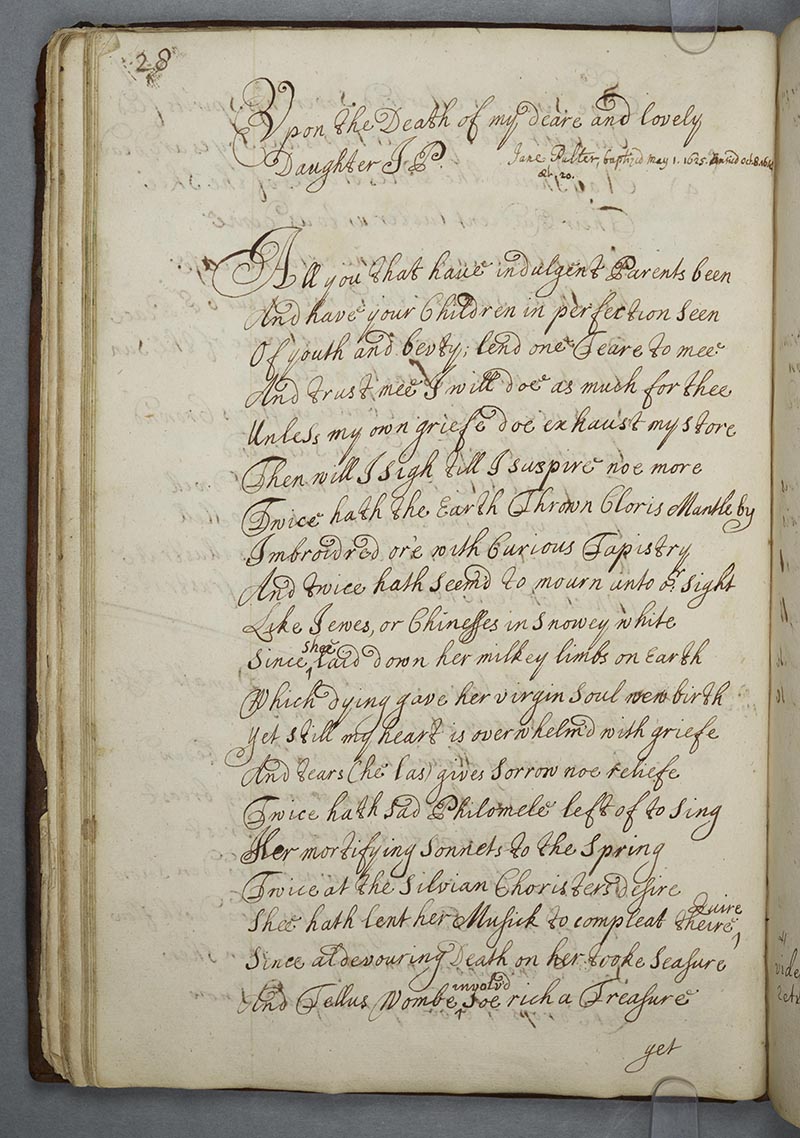 28
Upon the Death of my deare and lovely
Daughter J. P.
Jane Pulter, baptized may 1. 1625. buried oct. 8. 1645
æt. 20.
All you that have indulgent Parents been
And have your Children in perfection seen
Of youth and bevty; lend one Teare to mee
And trust mee I will doe as much for thee
Unless my own griefe doe exhaust my store
Then will I sigh till I suspire noe more
Twice hath the Earth Thrown Cloris Mantle by
Imbroidred o're with Curious Tapistry
And twice hath seem'd to mourn unto or sight
Like Jewes, or Chinesses in snowey white
Since shee laid down her milkey limbs on Earth
Which dying gave her virgin soul new birth
yet still my heart is overwhelm'd with griefe
And tears (he las) gives sorrow noe reliefe
Twice hath sad Philomele left of to sing
Her mortifying sonnets to the spring
Twice at the silvian Choristers desire
shee hath lent her Musick to compleat theire Quire
Since al devouring Death on her tooke seasure
And Tellus Wombe involv'd soe rich a Treasure
yet